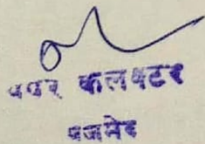 अपर कलक्टर
बिजनौर